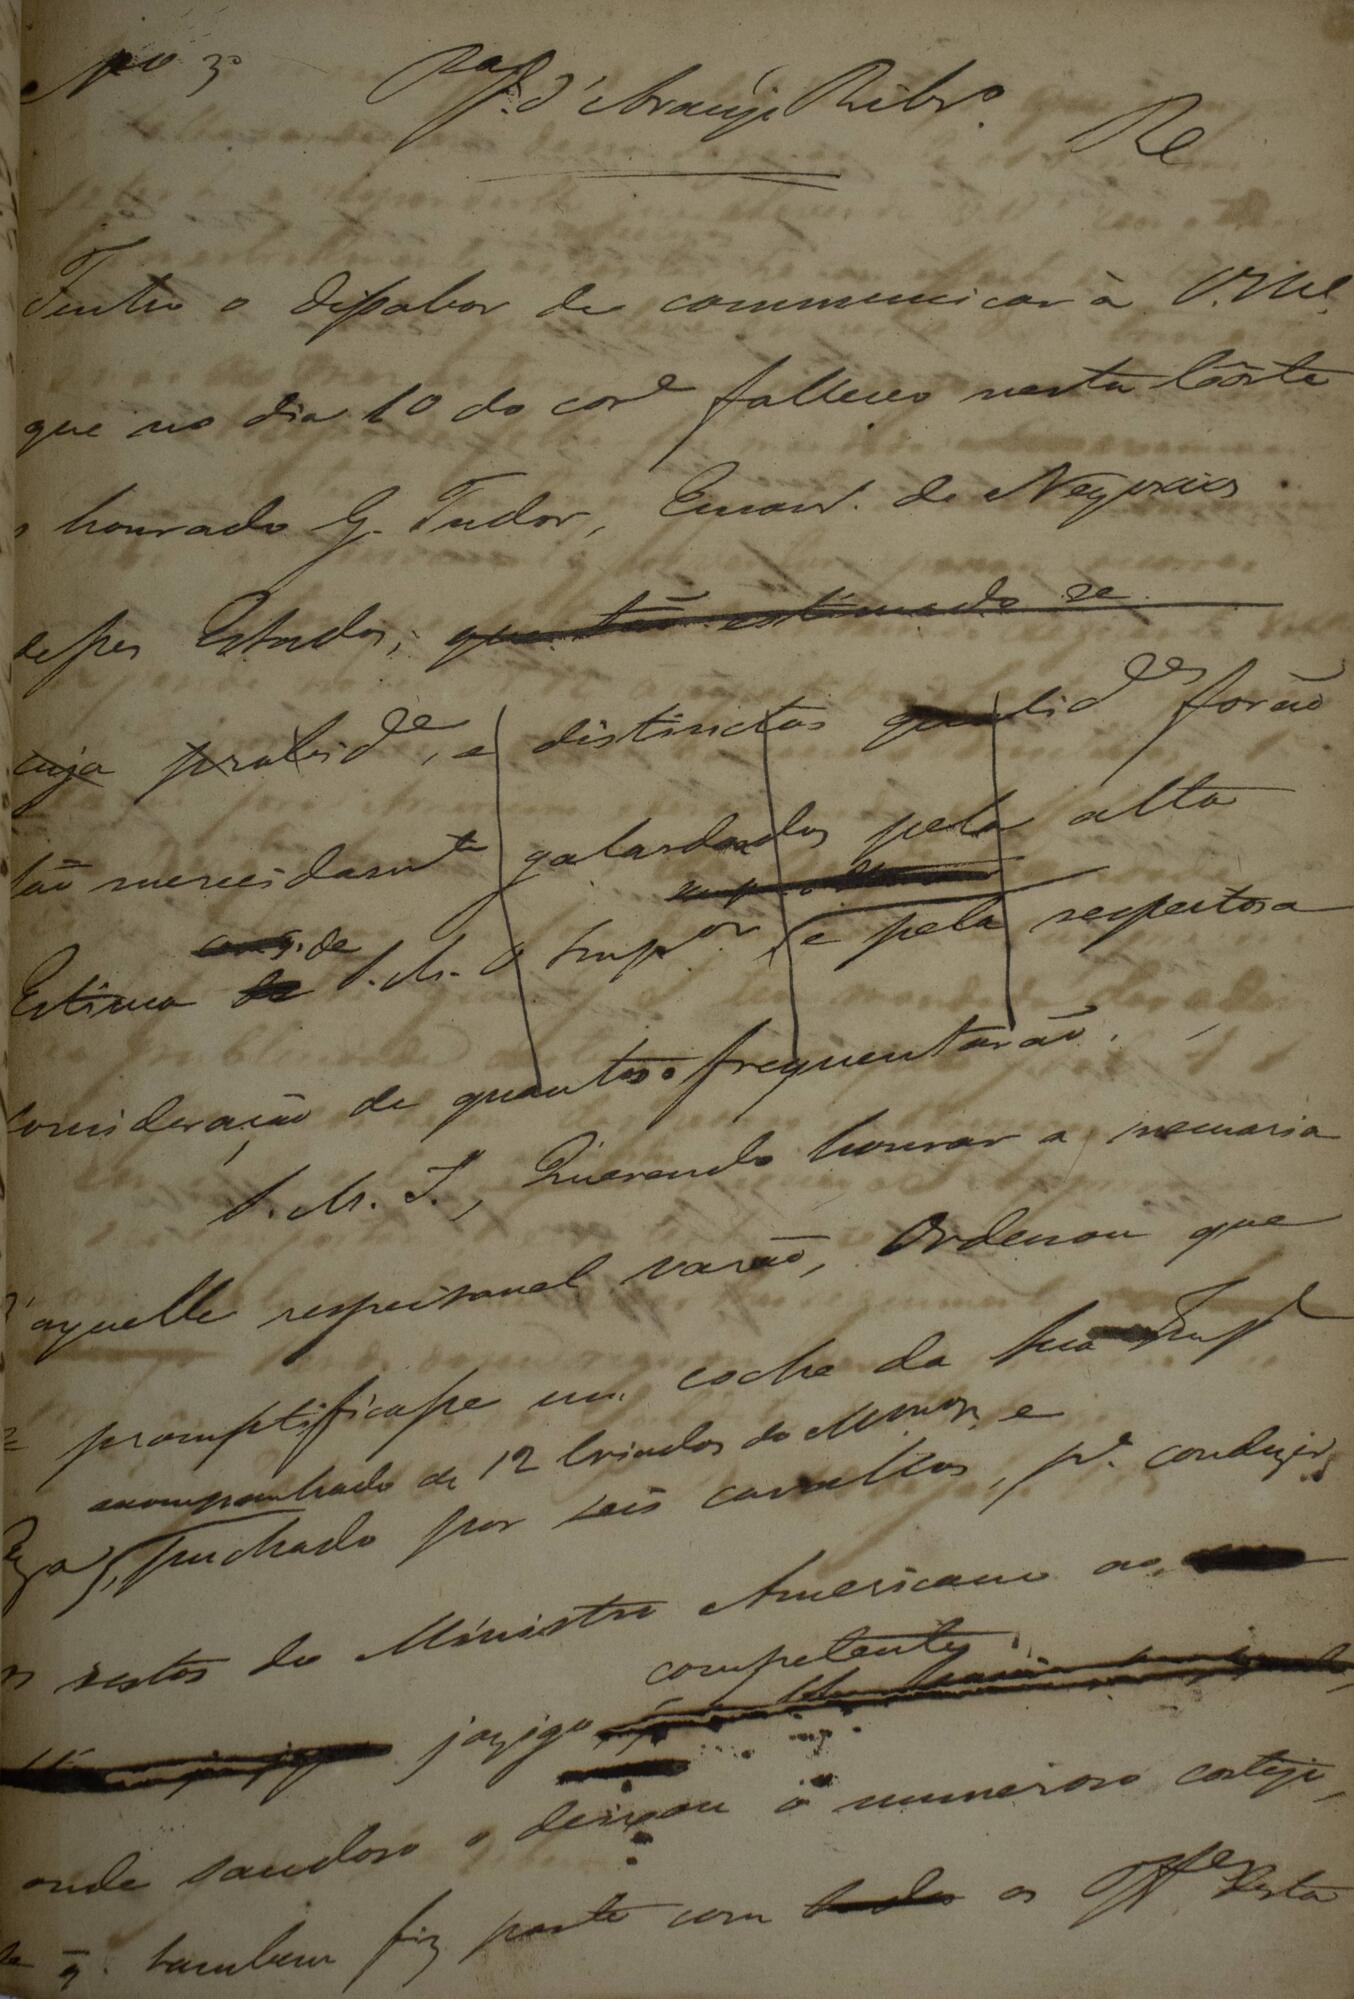 Nº 3º P.ª J. d'Araujo Ribrº. Re
Tenho o dissabor de communicar à V.Mce.
que no dia 10 do corre falleceo nesta Côrte
o honrado G. Tudor, Encarr. de Negocios
desses Estados, que tão estimado se
cuja probide, e distinctas qualides forão
tão merecidamte galardoados pela alta
consi. de
Estima de S. M. O Impor e pela respeitosa
Consideração de quantos o frequentarão.
S. M. I., Querendo honrar a memoria
d'aquelle respeitavel varão, Ordenou que
se promptificasse um coche da Sua Impl
acompanhado de 12 Criados do Mmor, e
Caza, puchado por seis cavallos, pª. conduzir
os restos do Ministro Americano ao
competente
jazigo,
onde saudoso o deixou o numeroso cortejo,
de q. tambem fiz parte com todos os Offes desta